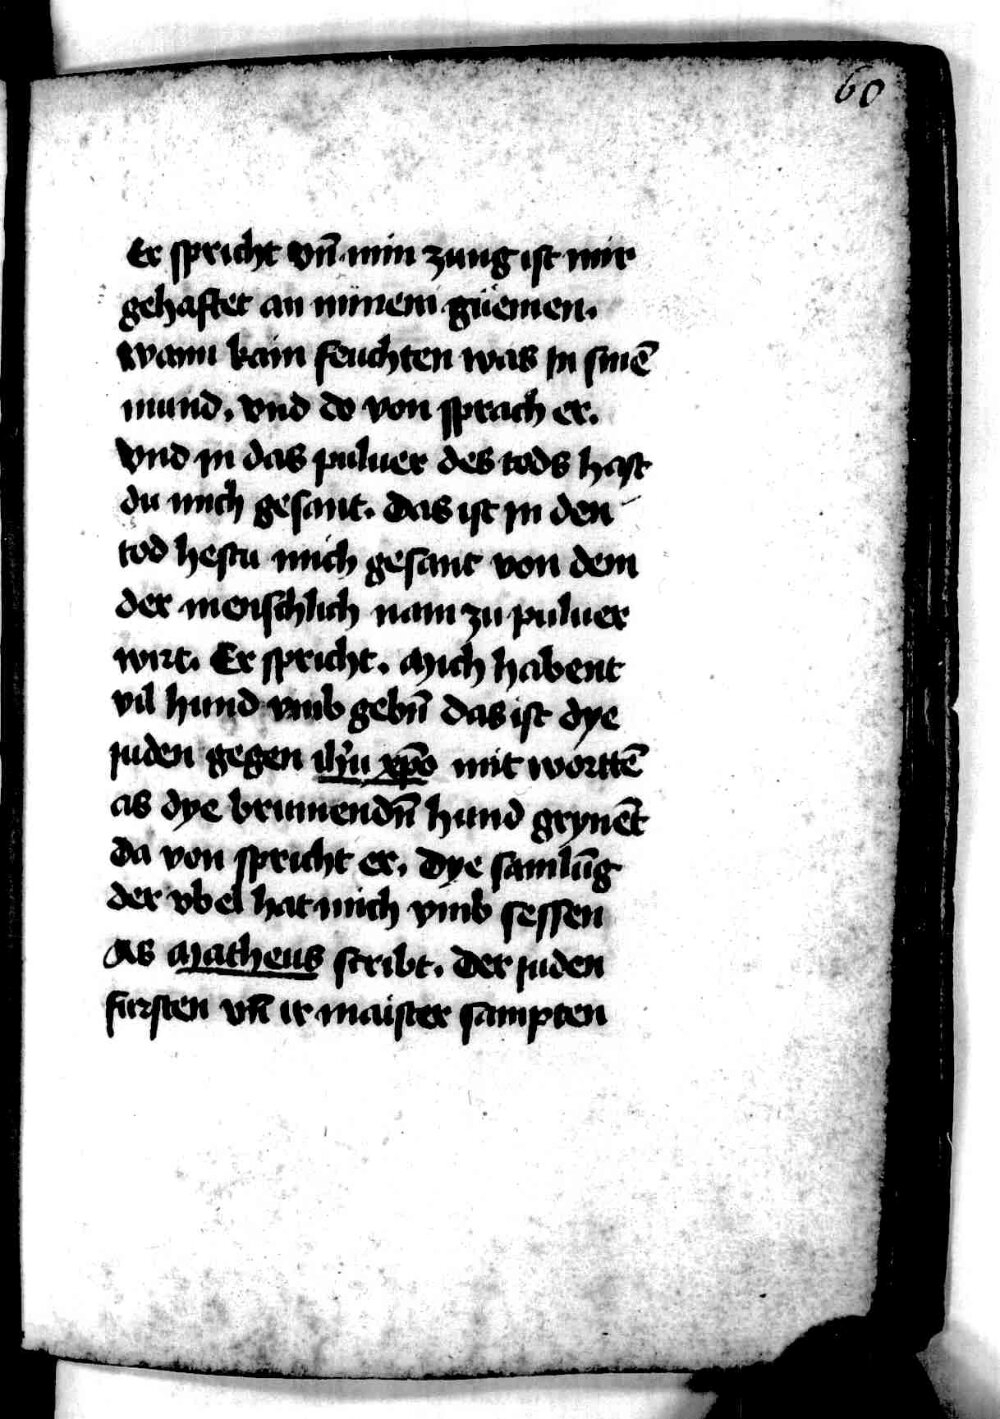 60
Er spricht vn̄ min zung ist mir
gehaftet an minem güemen.
Wann kain feuchten was in sinē
mund. vnd do von sprach er.
Vnd in das puluer des tods hast
du mich gesant. Das ist in den
tod hestu mich gesant von dem
der menschlich nam zu puluer
wirt. Er spricht. Mich habent
vil hund vmb gebn̄ das ist dye
juden gegen ihū xpō mit worttē
as dye brimendn̄ hund grynēt
da von spricht er. Dye samlūg
der vbel hat mich vmb sessen
As Matheus scribt. Der juden
fürsten vn̄ ir maister sampten